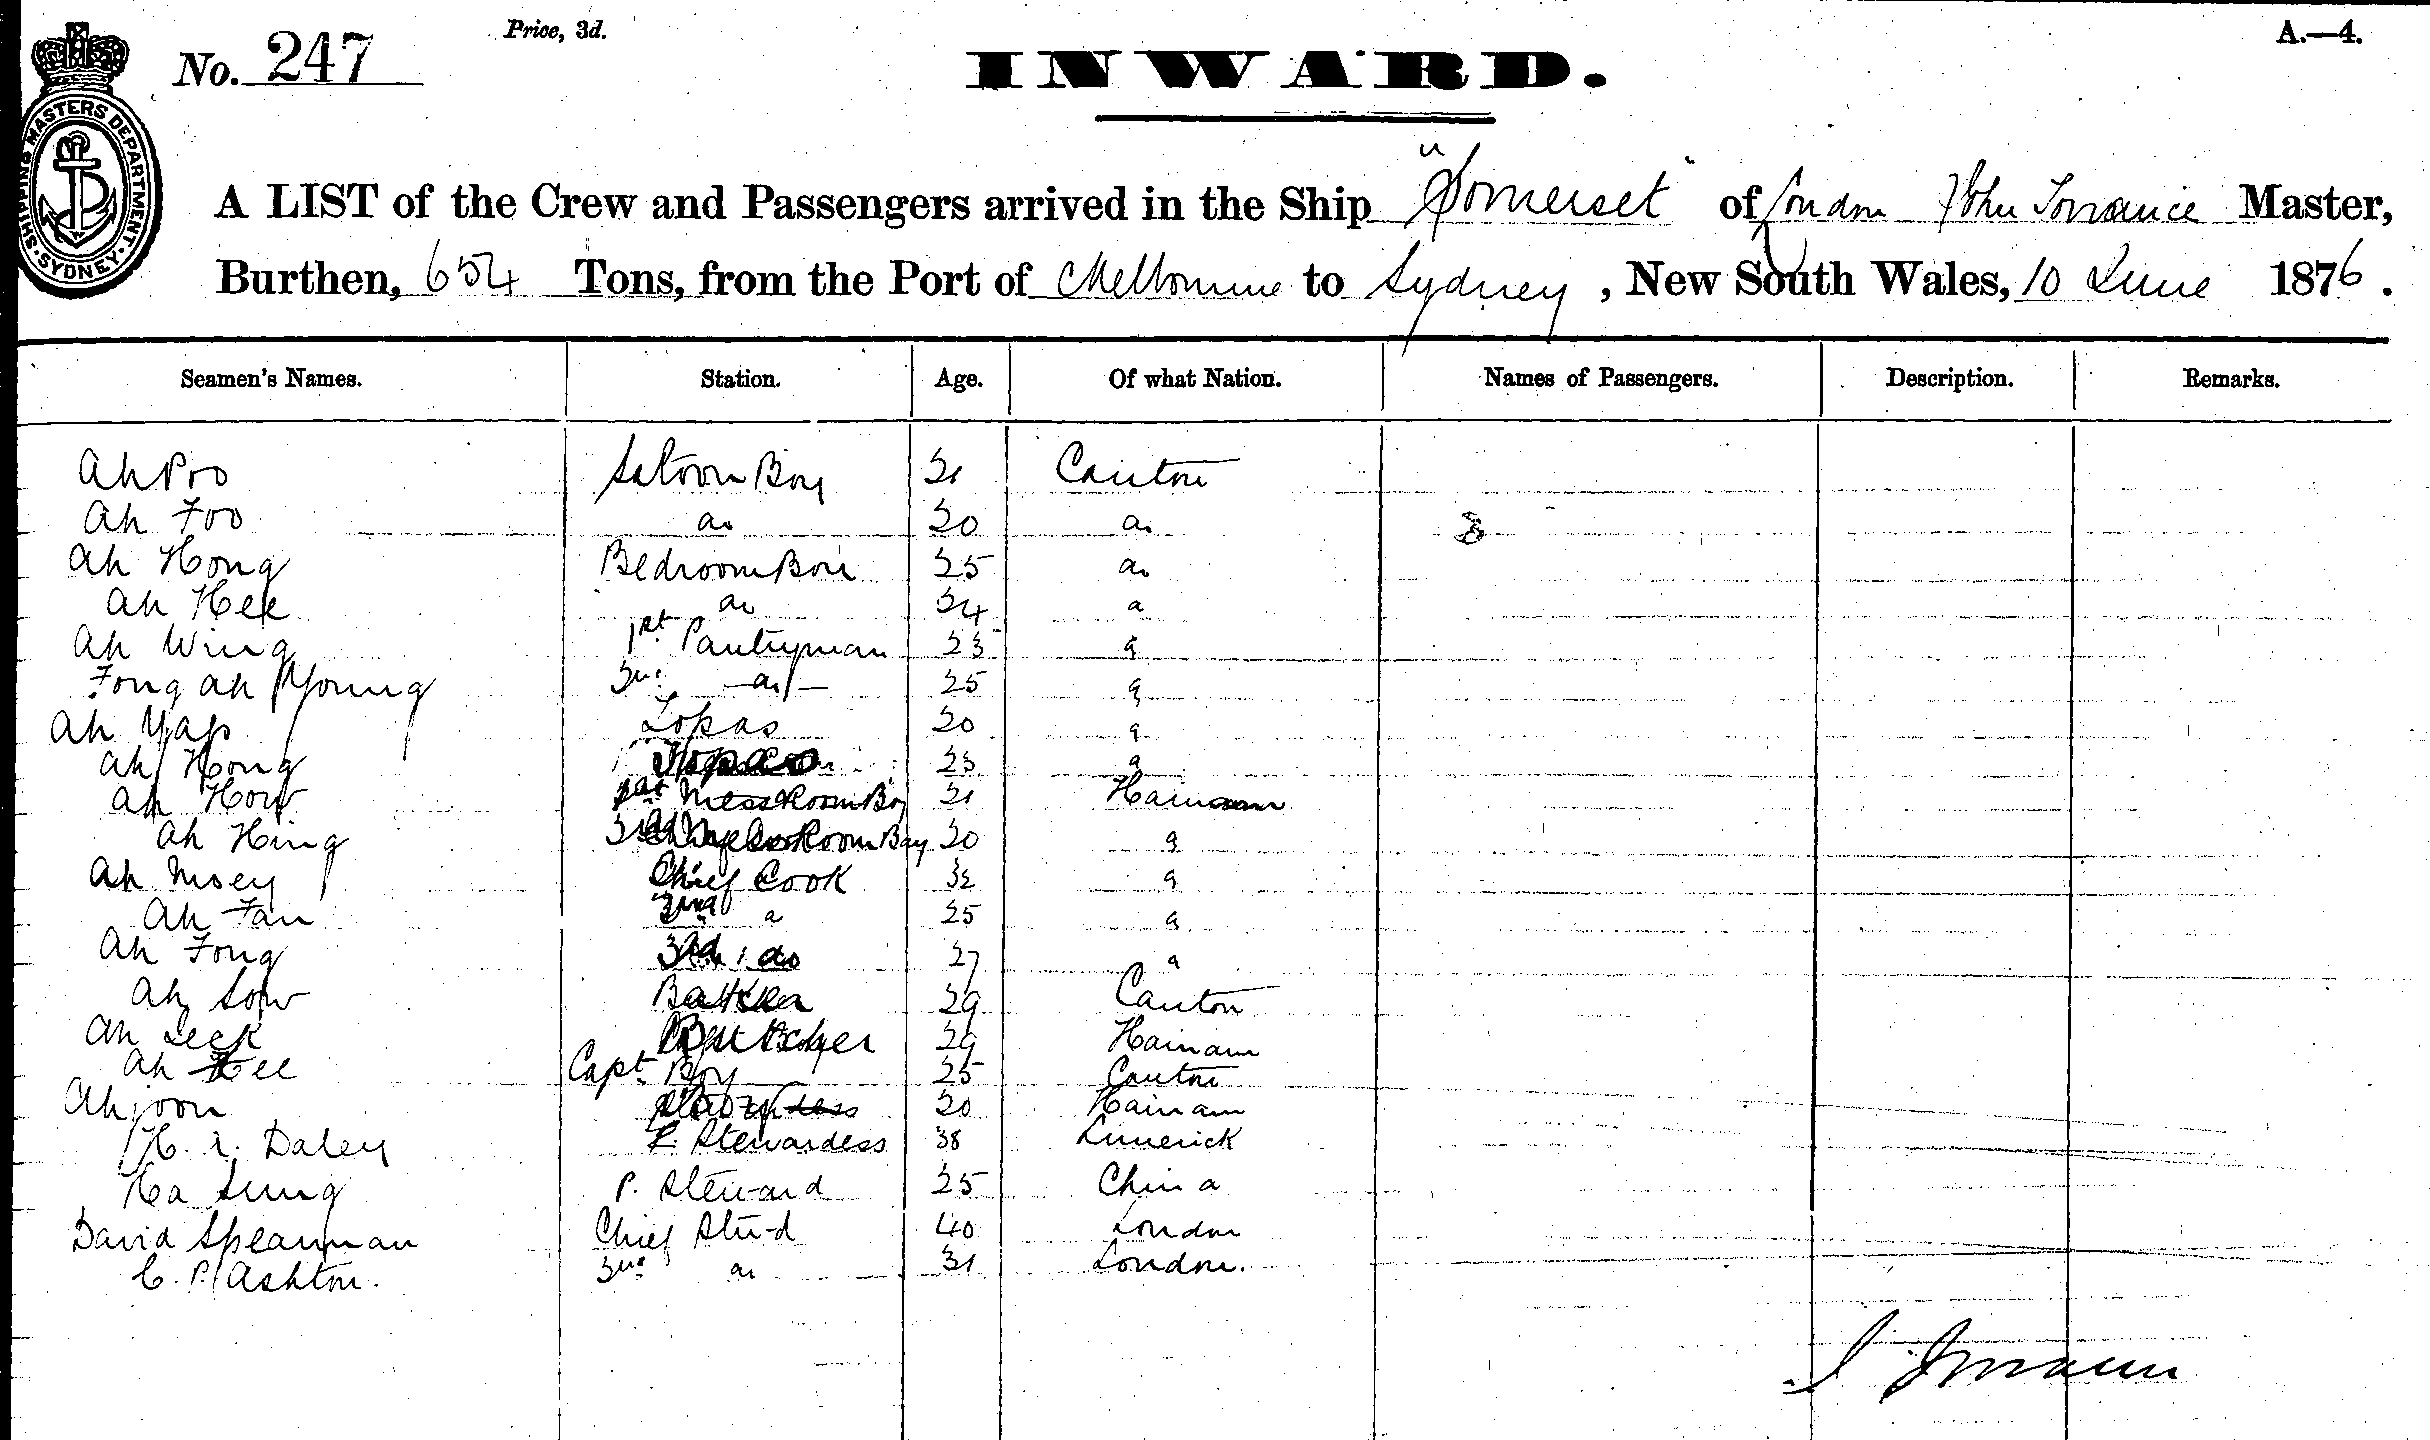 Price, 3d.
A.—4.
No. 247
INWARD.
SHIPPING MASTERS DEPARTMENT. SYDNEY.
A LIST of the Crew and Passengers arrived in the Ship "Somerset" of London John Torrance Master,
Burthen, 654 Tons, from the Port of Melbourne to Sydney, New South Wales, 10 June 1876.
Seamen's Names. Station. Age. Of what Nation. Names of Passengers. Description. Remarks.
Ah Poo Saloon Boy 21 Canton
Ah Foo do 20 do
Ah Hong Bedroom Boy 25 do
Ah Hee do 24 do
Ah Wing 1st Pantryman 23 do
Fong Ah Young 2nd do 25 do
Ah Yap Topas 20 do
Ah Hong Topas 23 do
Ah How 1st Mess Room Boy 21 Hainam
Ah Hing 2nd Mess Room Boy 20 do
Ah Moey Chief Cook 32 do
Ah Fan 2nd do 25 do
Ah Fong 3rd do 27 do
Ah Sow Baker 29 Canton
Ah Seek Butcher 29 Hainam
Ah Hee Capt. Boy 25 Canton
Ah joon 20 Hainam
Daley Stewardess 38 Limerick
Ha Sung P. Steward 25 China
David Spearman Chief Stu-d 40 London
C. P. Ashton. 2nd do 31 London.